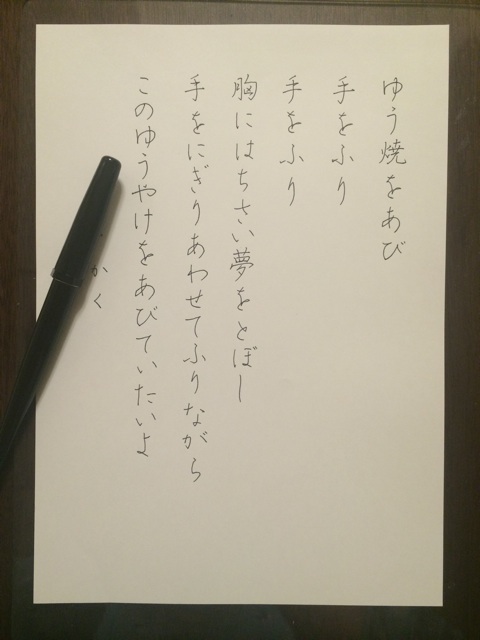 ゆう焼をあび
手をふり
手をふり
胸にはちさい夢をとぼし
手をにぎりあわせてふりながら
このゆうやけをあびていたいよ
かく